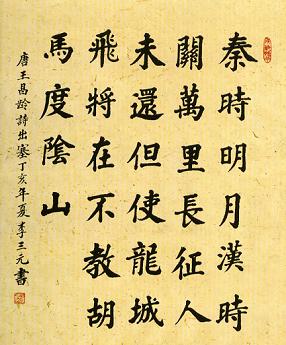 秦時明月漢時
關萬里長征人
未還但使龍城
飛將在不教胡
馬度陰山
唐王昌齡詩出塞丁亥年夏李三元書